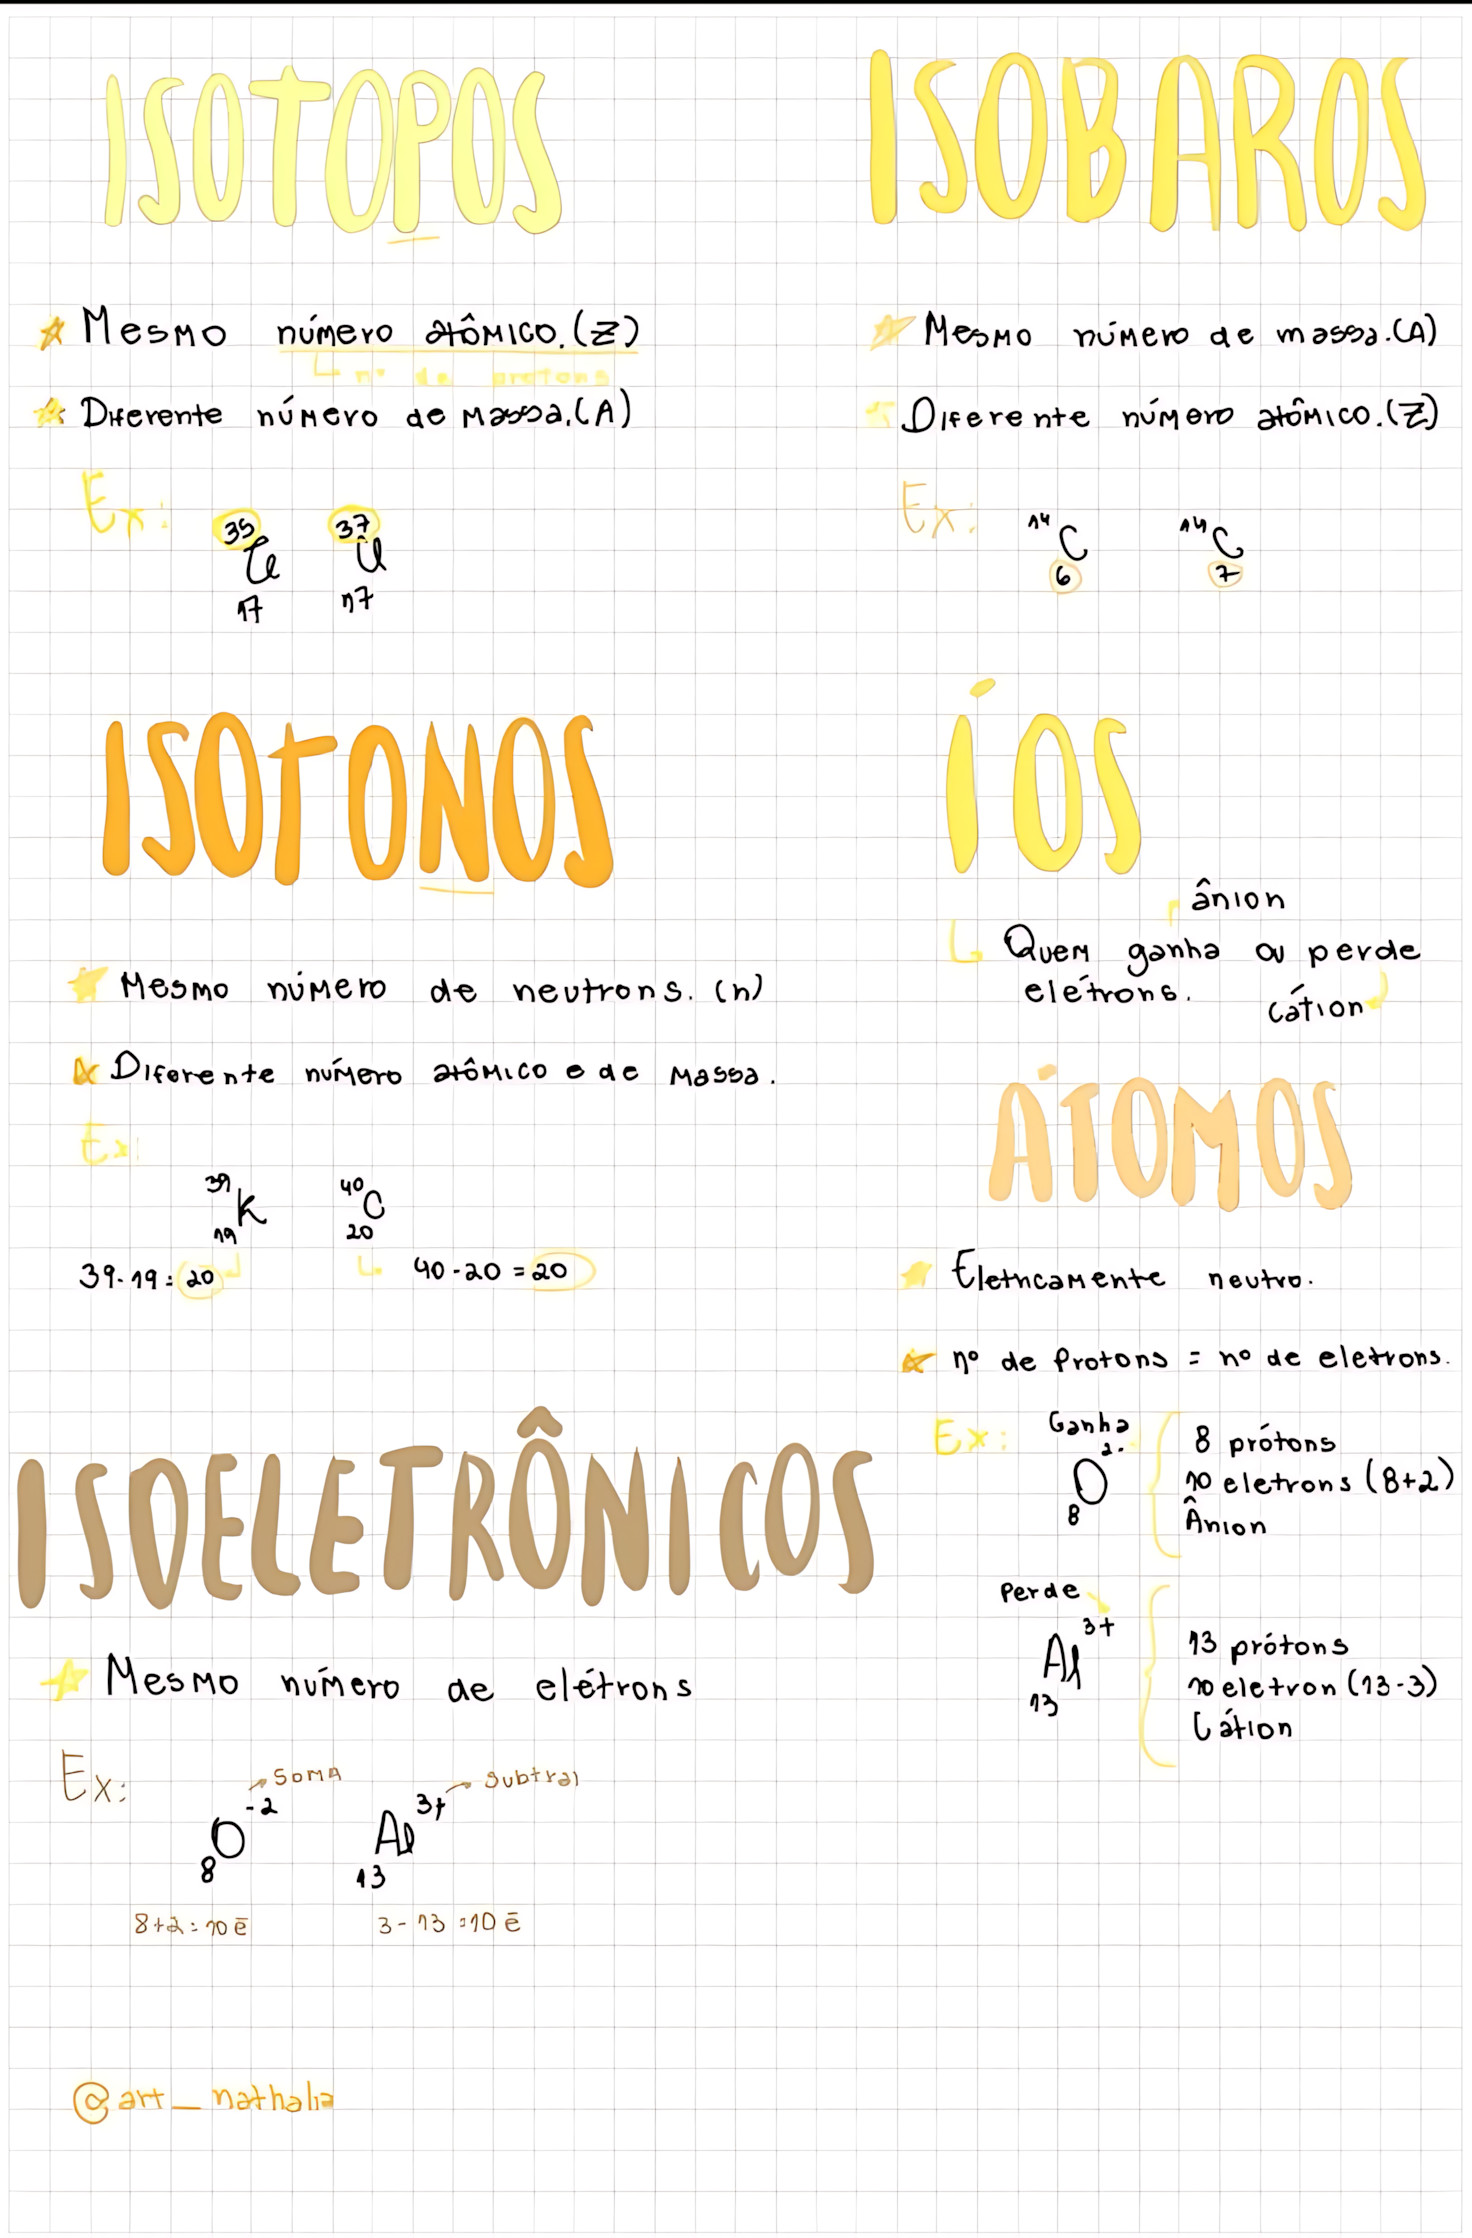 ISOTOPOS
Mesmo número atômico.(Z)
nº de protons
Diferente número de massa.(A)
Ex:
35 Cl 17
37 Cl 17
ISOBAROS
Mesmo número de massa.(A)
Diferente número atômico.(Z)
Ex:
14 C 6
14 C 7
ISOTONOS
Mesmo número de neutrons. (n)
Diferente número atômico e de massa.
Ex:
39 K 19
40 C 20
39-19=20
40-20=20
ÍOS
ânion
Quem ganha ou perde
elétrons.
cátion
ÁTOMOS
Eletricamente neutro.
nº de Protons = nº de eletrons.
Ex:
Ganha
8 O 2-
8 prótons
10 eletrons (8+2)
Ânion
Perde
13 Al 3+
13 prótons
10 eletron (13-3)
Cátion
ISOELETRÔNICOS
Mesmo número de elétrons
Ex:
soma
8 O -2
subtrai
13 Al 3+
8+2=10 ē
3-13=10 ē
@art_nathalia